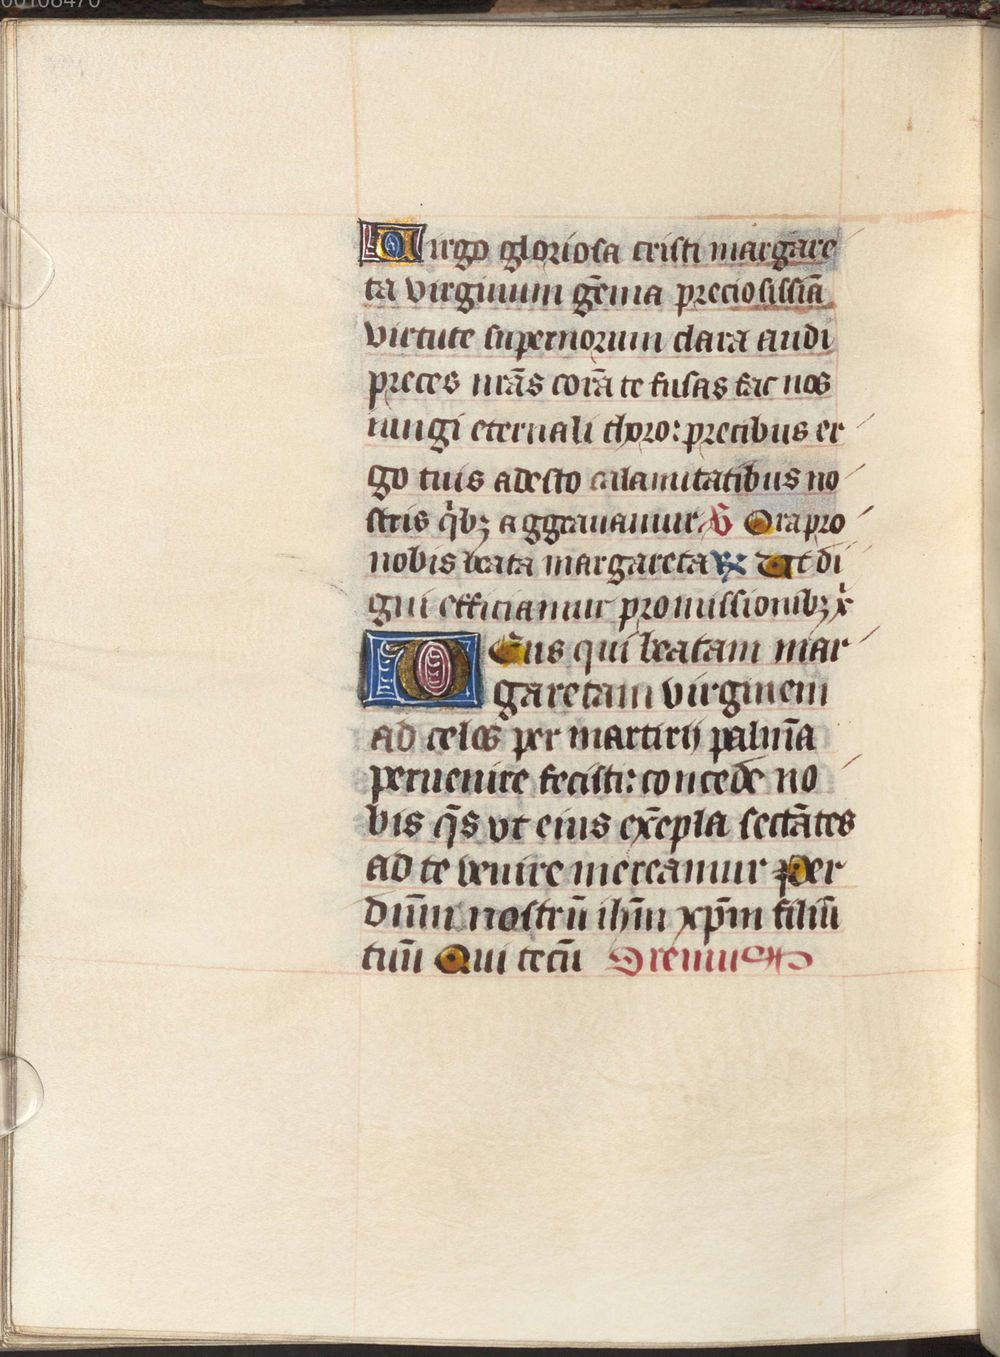 Uirgo gloriosa cristi margare
ta virginum gēma preciosissiā
virtute supernorum clara audi
preces nrās corā te fusas fac nos
iungi eternali choro: precibus er
go tuis adesto calamitatibus no
stris q̇bꝫ aggrauamur ℣ Ora pro
nobis beata margareta ℟ Ut di
gni efficiamur promissionibꝫ x̓
Deus qui beatam mar
garetam virginem
ad celos per martirij palmā
peruenire fecisti: concede no
bis q̄s vt eius exēpla sectātes
ad te venire mereamur Per
dnm̄ nostrū ihm̄ xp̄m filiū
tuū Qui tecū Oremus